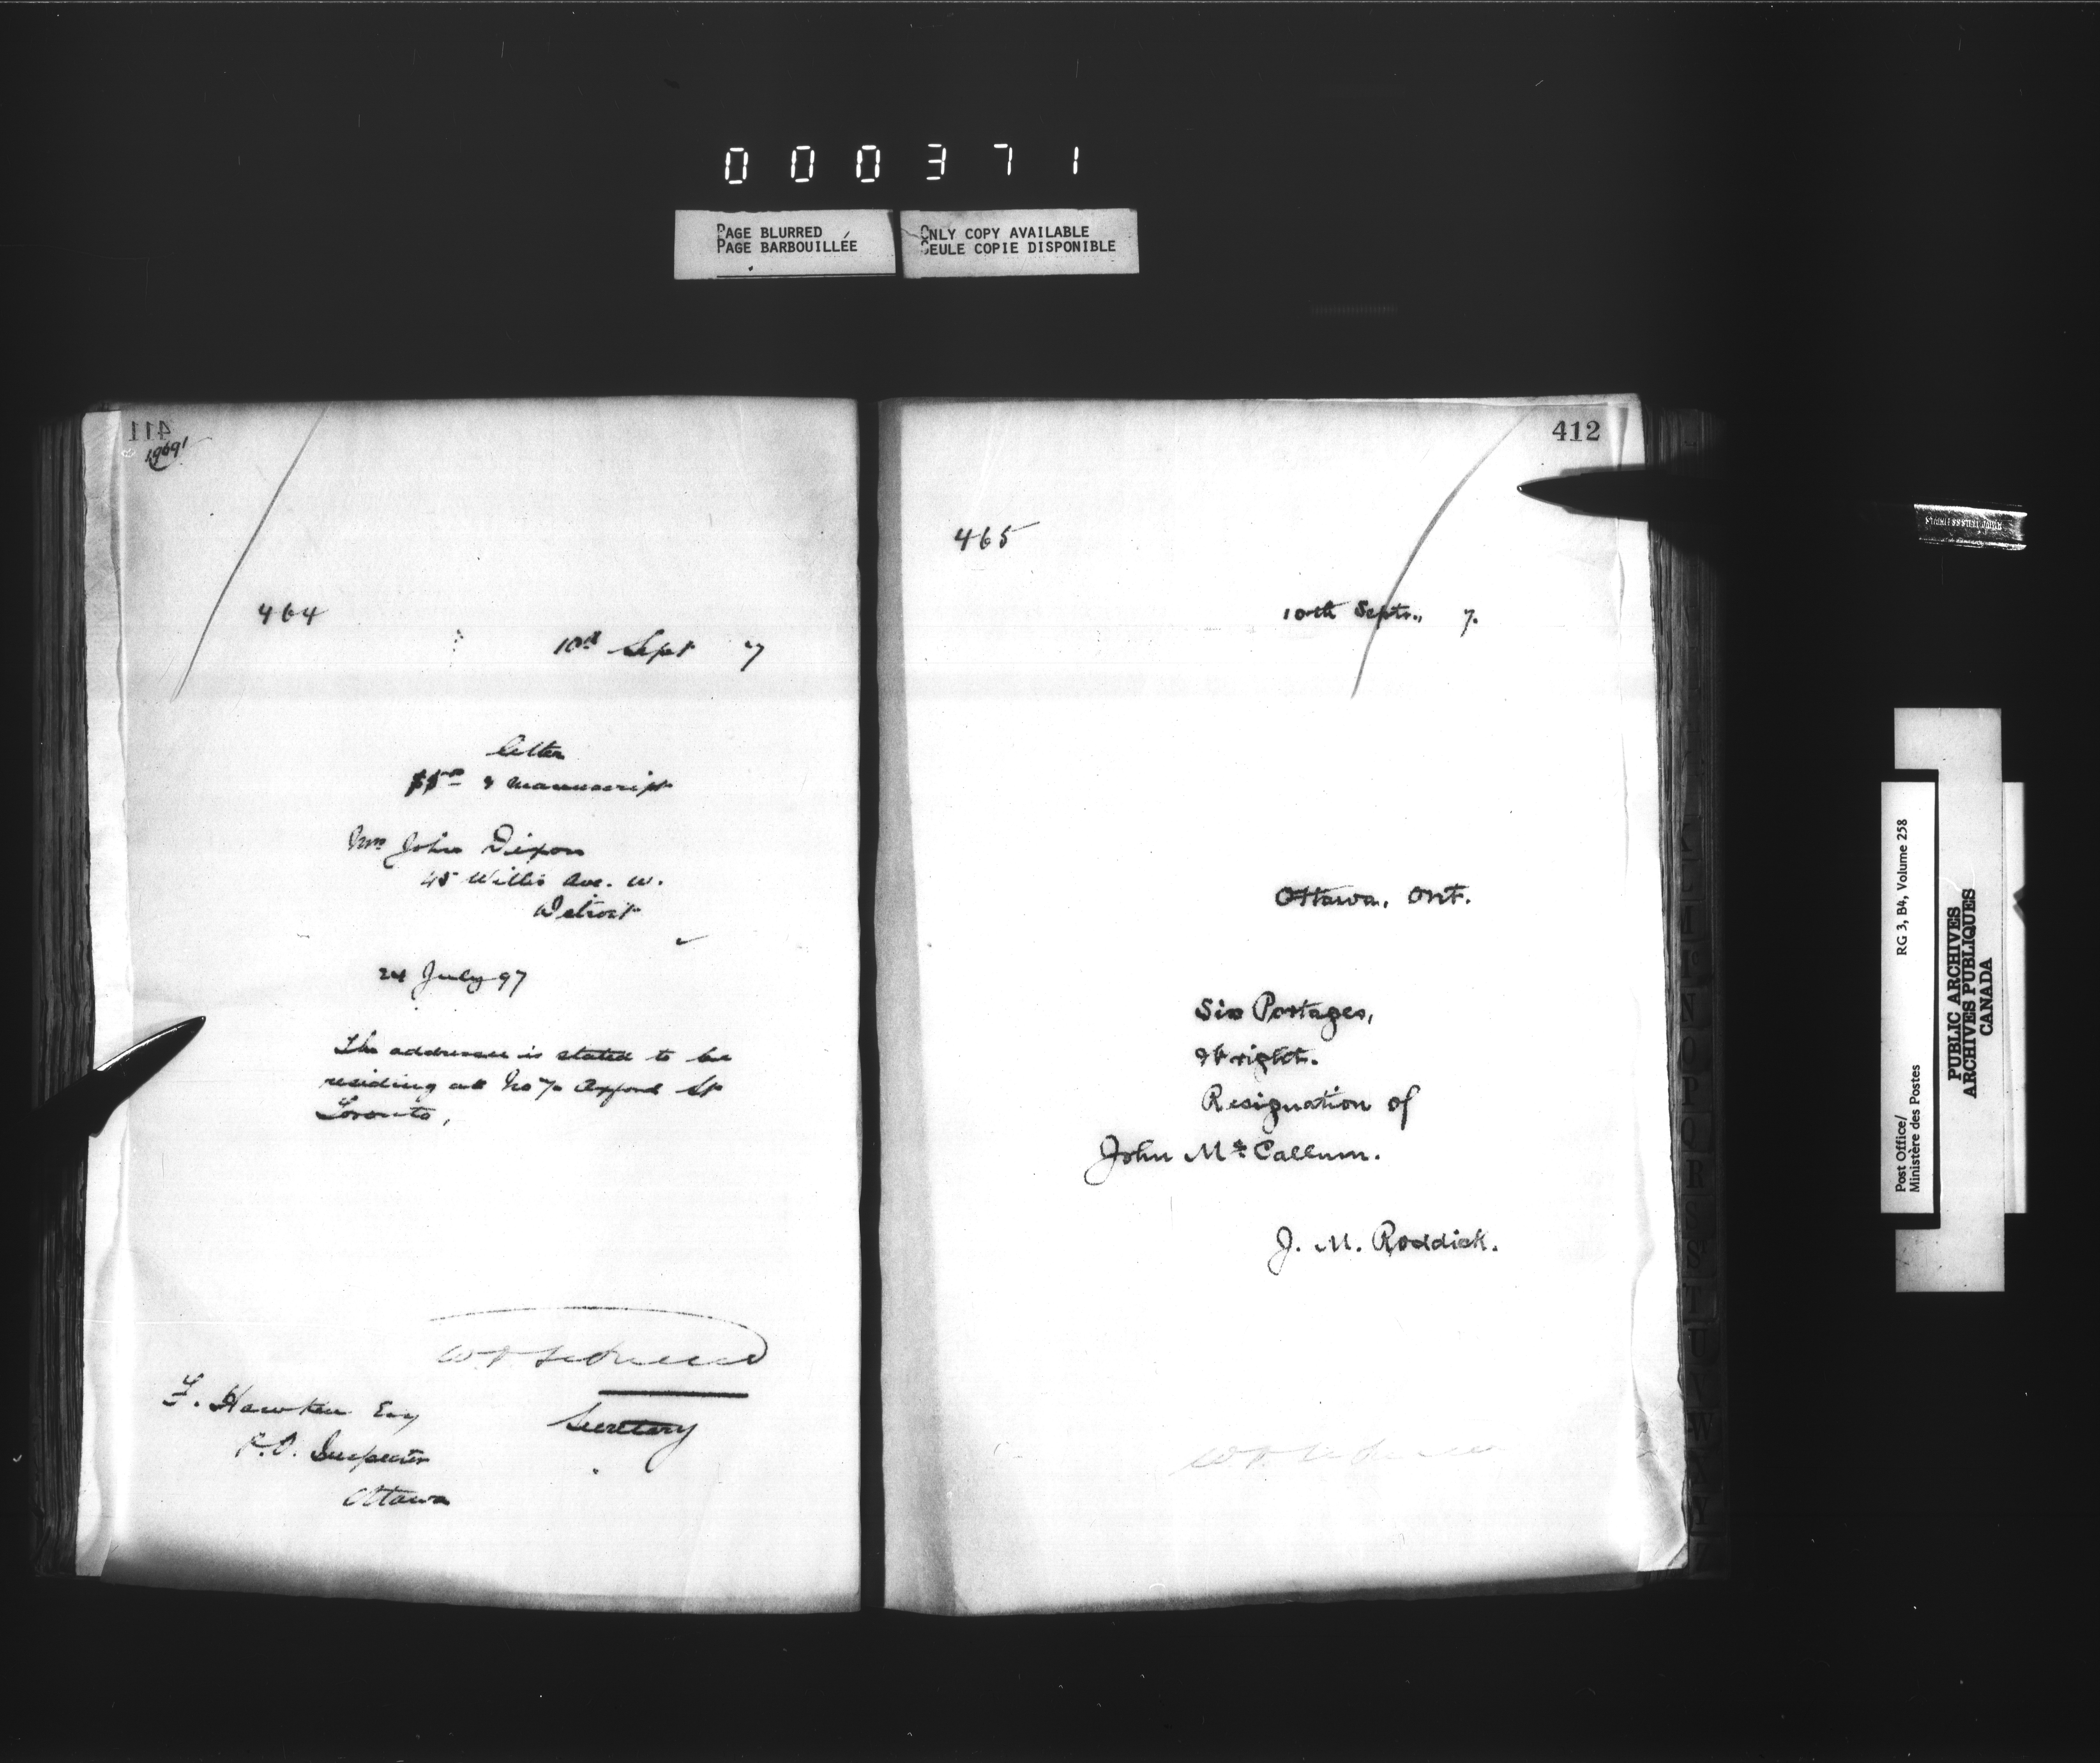 000371
PAGE BLURRED
PAGE BARBOUILLÉE
ONLY COPY AVAILABLE
SEULE COPIE DISPONIBLE
411
464
10th Sept 7
Letter
& manuscript
Mrs John Dixon
45 Willis Ave. W.
Detroit
24 July 97
The addressee is stated to be
residing at No 7 Oxford St
Toronto,
Secretary
Hawken Esq
P.O. Inspector
Ottawa
412
465
10th Septr., 7.
Ottawa, Ont.
Six Portages,
Wright.
Resignation of
John McCallum.
J. M. Roddick.
Post Office/
Ministère des Postes
RG 3, B4, Volume 258
PUBLIC ARCHIVES
ARCHIVES PUBLIQUES
CANADA